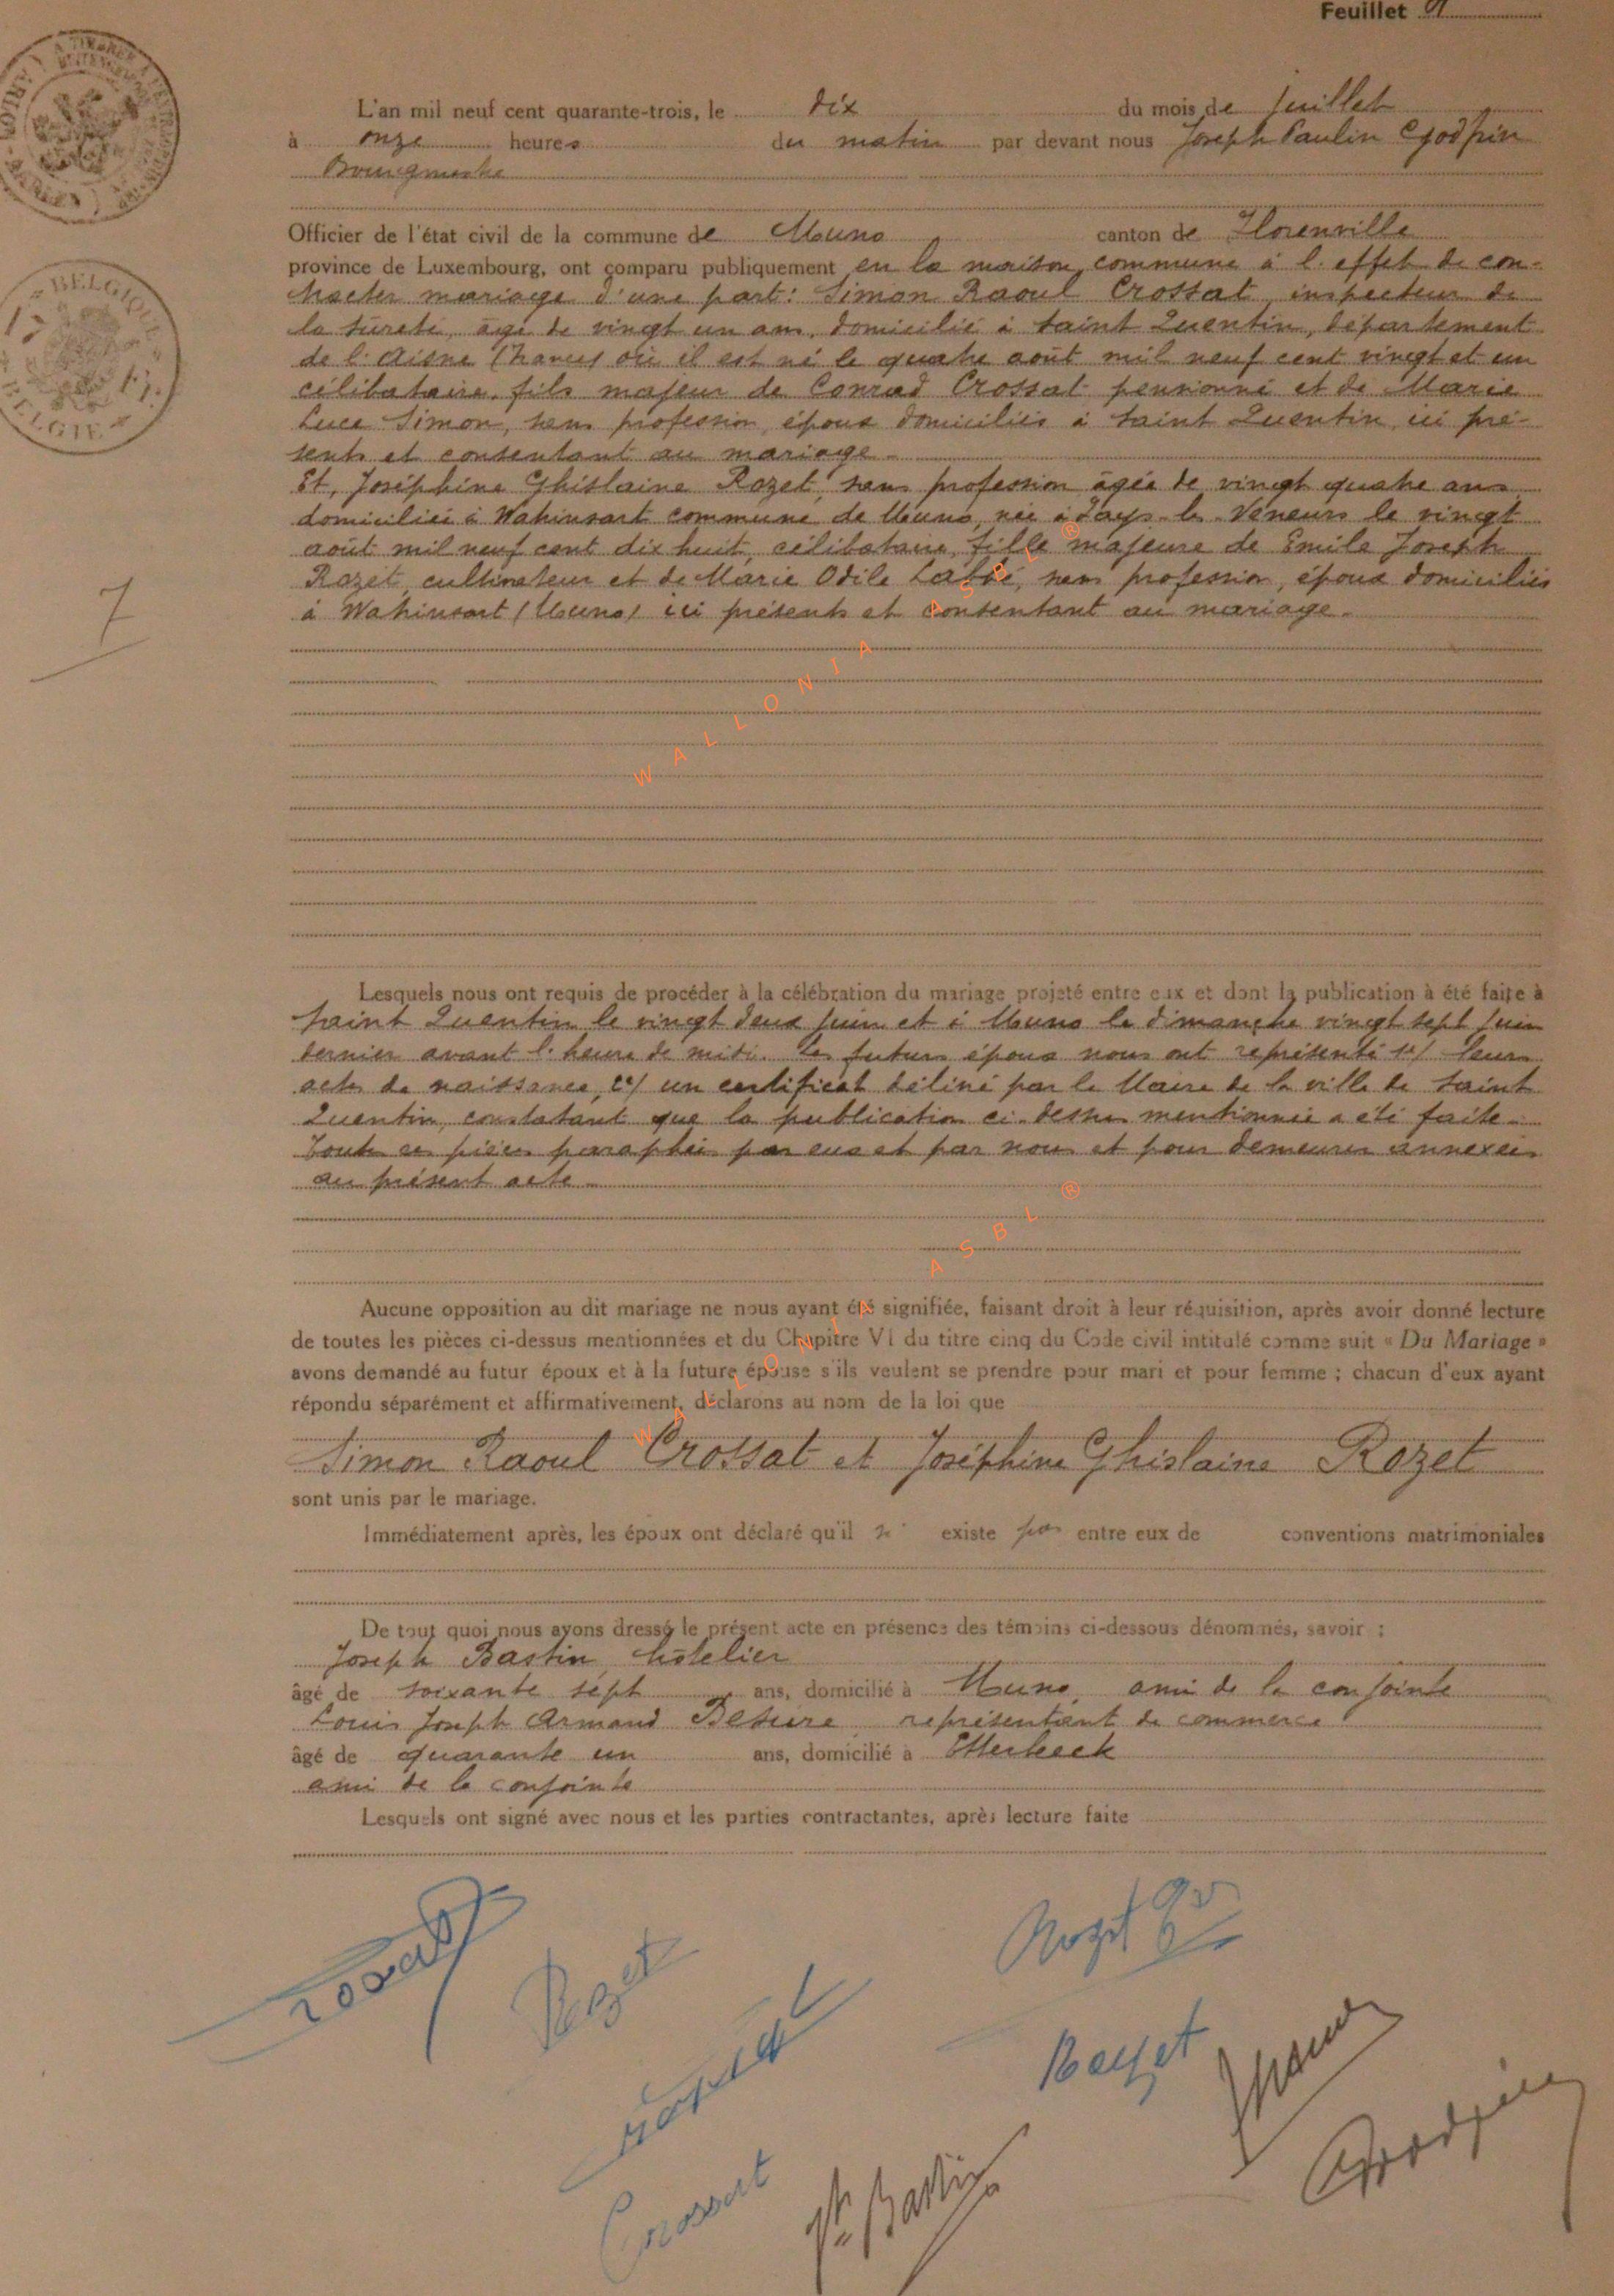 Feuillet
L'an mil neuf cent quarante-trois, le dix du mois de juillet
à onze heures du matin par devant nous Joseph Paulin Godfrin
Bourgmestre
Officier de l'état civil de la commune de Muno canton de Florenville
province de Luxembourg, ont comparu publiquement en la maison commune à l'effet de con-
tracter mariage d'une part: Simon Raoul Crossat, inspecteur de
la sureté, agé de vingt un ans, domicilié à Saint Quentin, département
de l'Aisne (France) où il est né le quatre août mil neuf cent vingt et un
célibataire, fils majeur de Conrad Crossat pensionné et de Marie
Luce Simon, sans profession, époux domiciliés à Saint Quentin, ici pré-
sents et consentant au mariage.
Et, Joséphine Ghislaine Rozet, sans profession âgée de vingt quatre ans
domiciliée à Watrinsart commune de Muno, née à Says-les-Veneurs le vingt
août mil neuf cent dix huit, célibataire, fille majeure de Emile Joseph
Rozet, cultivateur et de Marie Odile Labbé, sans profession, époux domiciliés
à Watrinsart (Muno) ici présents et consentant au mariage.
7
WALLONIA ASBL ®
Lesquels nous ont requis de procéder à la célébration du mariage projeté entre eux et dont la publication à été faite à
Saint Quentin le vingt deux juin et à Muno le dimanche vingt sept juin
dernier avant l'heure de midi. Les futurs époux nous ont représenté 1°/ leurs
actes de naissance, 2°/ un certificat délivré par le Maire de la ville de Saint
Quentin, constatant que la publication ci-dessus mentionnée a été faite.
Toutes ces pièces paraphées par eux et par nous et pour demeurer annexées
au présent acte.
WALLONIA ASBL ®
Aucune opposition au dit mariage ne nous ayant été signifiée, faisant droit à leur réquisition, après avoir donné lecture
de toutes les pièces ci-dessus mentionnées et du Chapitre VI du titre cinq du Code civil intitulé comme suit « Du Mariage »
avons demandé au futur époux et à la future épouse s'ils veulent se prendre pour mari et pour femme ; chacun d'eux ayant
répondu séparément et affirmativement, déclarons au nom de la loi que
Simon Raoul Crossat et Joséphine Ghislaine Rozet
sont unis par le mariage.
Immédiatement après, les époux ont déclaré qu'il n' existe pas entre eux de conventions matrimoniales
De tout quoi nous avons dressé le présent acte en présence des témoins ci-dessous dénommés, savoir :
Joseph Bastin, hôtelier
âgé de soixante sept ans, domicilié à Muno, ami de la conjointe
Louis Joseph Armand représentant de commerce
âgé de quarante un ans, domicilié à Etterbeek
ami de la conjointe
Lesquels ont signé avec nous et les parties contractantes, après lecture faite
Rozet
Rozet
Crossat
Bastin
Godfrin
BELGIQUE
BELGIE